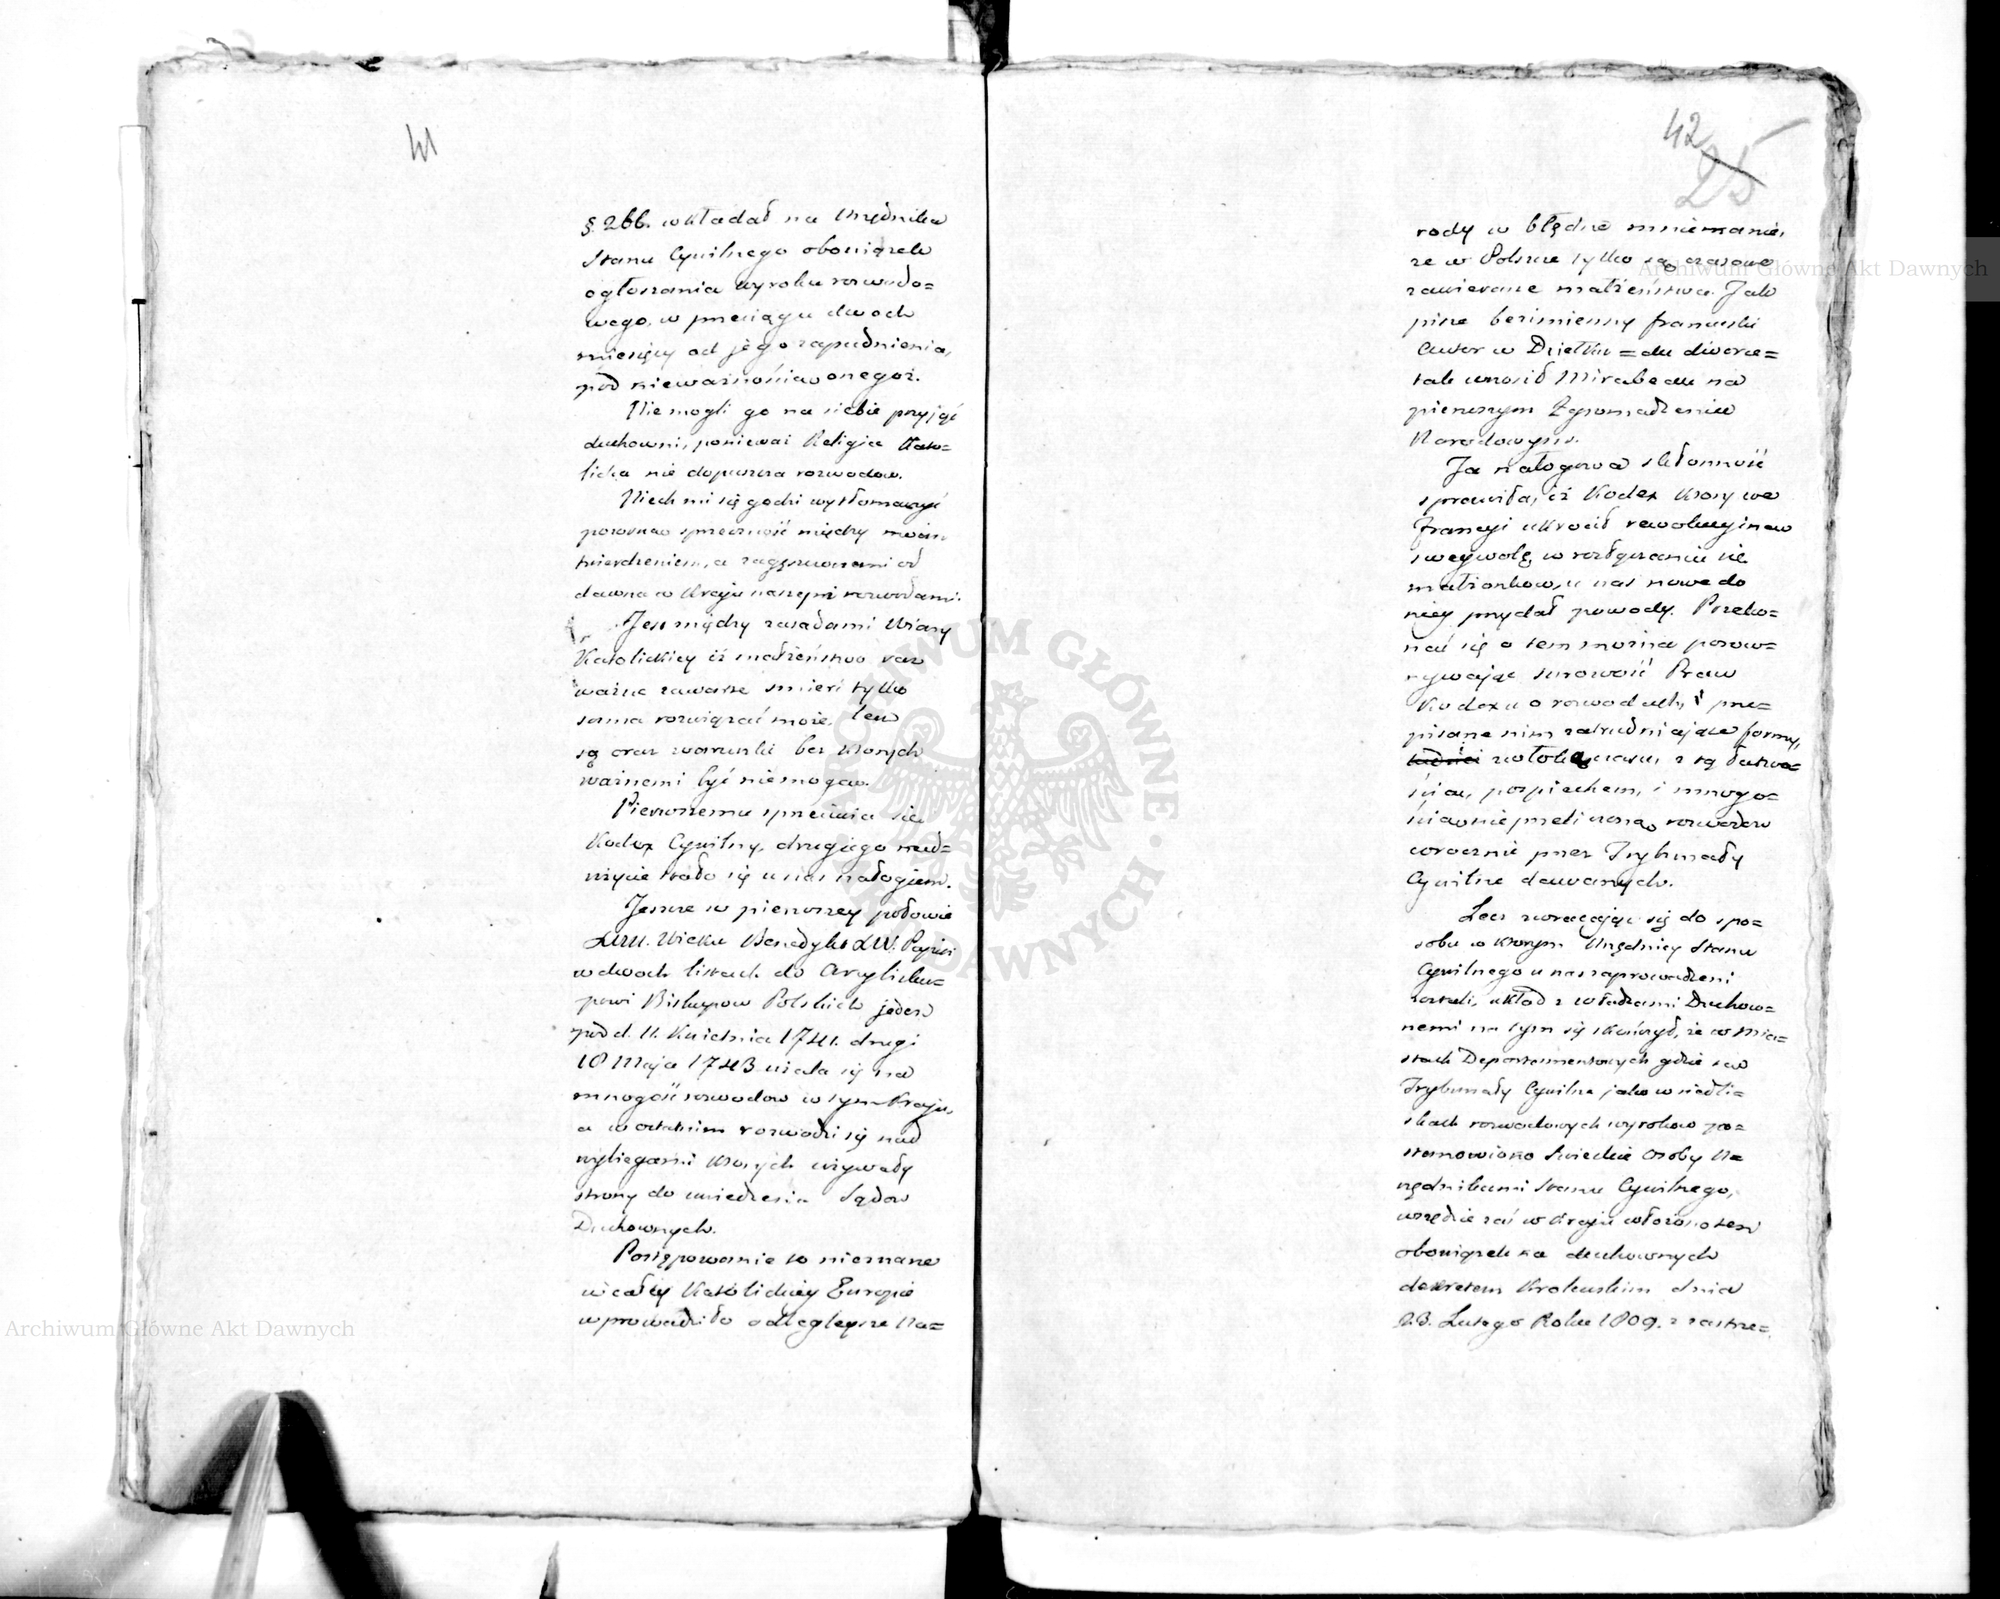 41
§. 266. wkładał na Urzędnika
Stanu Cywilnego obowiązek
ogłoszenia wyroku rozwodo=
wego, w przeciągu dwoch
miesięcy od jego zapadnienia,
pod nieważnością onegoż.
Nie mogli go na siebie przyjąć
duchowni, ponieważ Religia Kato=
licka nie dopuszcza rozwodow.
Niech mi się godzi wytłomaczyć
pozorną sprzeczność między moim
twierdzeniem, a zagęszczonemi od
dawna w Kraju naszym rozwodami.
Jest między zasadami Wiary
Katolickiey iż małżeństwo raz
ważne zawarte smierć tylko
sama rozwiązać może. Lecz
są oraz warunki bez ktorych
ważnemi być niemogą.
Pierwszemu sprzeciwia się
Kodex Cywilny, drugiego nad=
użycie stało się u nas nałogiem.
Jeszcze w pierwszey połowie
XVIII. Wieku Benedykt XIV. Papież
w dwoch listach do Arcybisku=
powi Biskupow Polskich jeden
pod d. 11. Kwietnia 1741. drugi
18 Maja 1743 użala się na
mnogość rozwodow w tym Kraju,
a w ostatnim rozwodzi się nad
wybiegami ktorych używały
strony do uwiedzenia Sądow
Duchownych.
Postępowanie to nieznane
w całey Katolickiey Europie
wprowadziło odlegleysze Na=
42
25
rody w błędne mniemanie,
że w Polszcze tylko są czasowe
zawierane małżeństwa. Jak
pisze bezimienny francuski
Autor w Dziełku = du divorce =
tak wnosił Mirabeau na
pierwszym Zgromadzeniu
Narodowym.
Ja nałogowa skłonność
sprawiła, iż Kodex ktory we
Francyi ukrocił rewolucyiną
swywolę w rozłączaniu się
małżonkow, u nas nowe do
niey przydał powody. Przeko=
nać się o tem można porow=
nywając surowość Praw
Kodexu o rozwodach, i prze=
pisane nim zatrudniające formy,
zwłokę czasu, z tą łatwo=
ścią, pospiechem, i mnogo=
ścią nieprzeliczoną rozwodow
corocznie przez Trybunały
Cywilne dawanych.
Lecz zwracając się do spo=
sobu w ktorym Urzędnicy Stanu
Cywilnego u nas zaprowadzeni
zostali, układ z władzami Duchow=
nemi na tym się skończył, że w Mia=
stach Departamentowych gdzie są
Trybunały Cywilne jako w siedli=
skach rozwodowych wyrokow po=
stanowiono Świeckie Osoby U=
rzędnikami Stanu Cywilnego,
wszędzie zaś w Kraju włożono ten
obowiązek na duchownych
dekretem Krolewskim dnia
23. Lutego Roku 1809. z zastrze=
Archiwum Główne Akt Dawnych
Archiwum Główne Akt Dawnych
ARCHIWUM GŁÓWNE AKT DAWNYCH